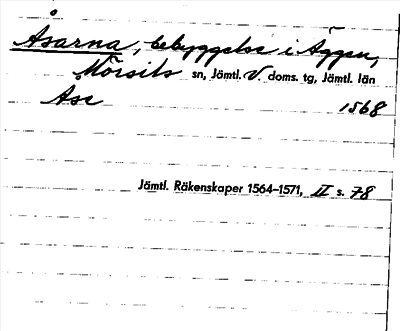 Åsarna, bebyggelse i Äggen,
Mörsils sn, Jämtl. V. doms. tg, Jämtl. län
Ase 1568
Jämtl. Räkenskaper 1564–1571, II s. 78